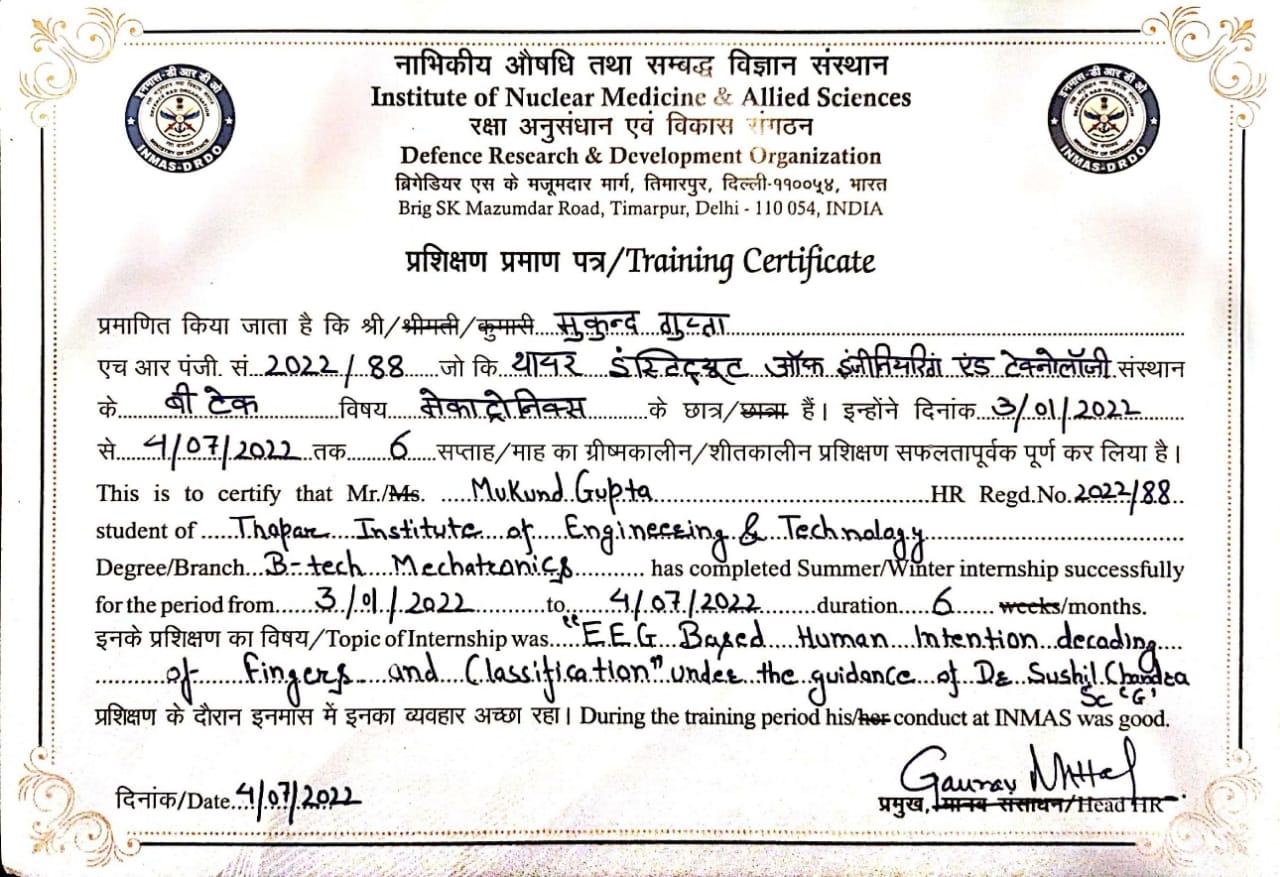 नाभिकीय औषधि तथा सम्बद्ध विज्ञान संस्थान
Institute of Nuclear Medicine & Allied Sciences
रक्षा अनुसंधान एवं विकास संगठन
Defence Research & Development Organization
ब्रिगेडियर एस के मजूमदार मार्ग, तिमारपुर, दिल्ली-११००५४, भारत
Brig SK Mazumdar Road, Timarpur, Delhi - 110 054, INDIA
इनमास-डी आर डी ओ
INMAS-DRDO
इनमास-डी आर डी ओ
INMAS-DRDO
प्रशिक्षण प्रमाण पत्र/Training Certificate
प्रमाणित किया जाता है कि श्री/श्रीमती/कुमारी...मुकुन्द गुप्ता
एच आर पंजी. सं 2022/88 जो कि थापर इंस्टिट्यूट ऑफ इंजीनियरिंग एंड टेक्नोलॉजी संस्थान
के बी टेक विषय मेकाट्रोनिक्स के छात्र/छात्रा हैं। इन्होंने दिनांक 3/01/2022
से 4/07/2022 तक 6 सप्ताह/माह का ग्रीष्मकालीन/शीतकालीन प्रशिक्षण सफलतापूर्वक पूर्ण कर लिया है।
This is to certify that Mr./Ms. Mukund Gupta HR Regd.No. 2022/88
student of Thapar Institute of Engineering & Technology
Degree/Branch B-tech Mechatronics has completed Summer/Winter internship successfully
for the period from 3/01/2022 to 4/07/2022 duration 6 weeks/months.
इनके प्रशिक्षण का विषय/Topic of Internship was "EEG Based Human Intention decoding
of Fingers and Classification" under the guidance of Dr Sushil Chandra
Sc 'G'
प्रशिक्षण के दौरान इनमास में इनका व्यवहार अच्छा रहा। During the training period his/her conduct at INMAS was good.
Gaurav Mittal
दिनांक/Date 4/07/2022
प्रमुख, मानव संसाधन/Head HR